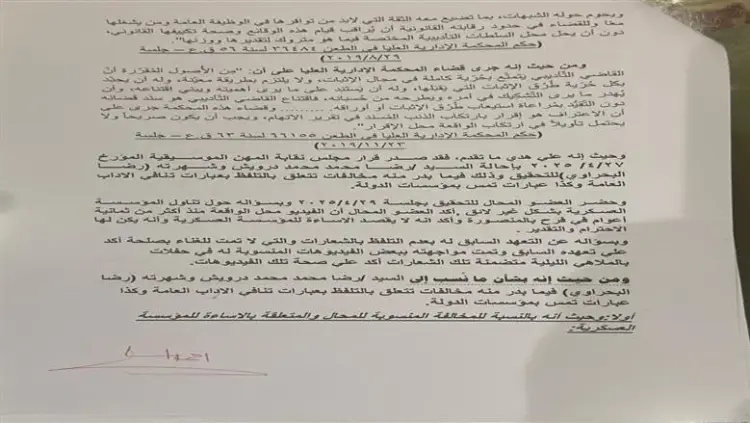 ويحوم حوله الشبهات، بما تضيع معه الثقة التي لابد من توافرها في الوظيفة العامة ومن يشغلها
معًا وللقضاء في حدود رقابته القانونية أن يُراقب قيام هذه الوقائع وصحة تكييفها القانوني،
دون أن يحل محل السلطات التأديبية المختصة فيما هو متروك لتقديرها ووزنها".
(حكم المحكمة الإدارية العليا في الطعن ٣٦٤٨٤ لسنة ٥٦ ق.ع – جلسة
٢٠١٩/٨/٢٩)
ومن حيث إنه جرى قضاء المحكمة الإدارية العليا على أن: "من الأصول المقررة أنَّ
القاضي التأديبي يتمتَّع بحُرّية كاملة في مجال الإثبات، ولا يلتزم بطريقة معيَّنة، وله أن يحدِّد
بكل حُرّية طُرُق الإثبات التي يقبلها، وله أن يستند على ما يرى أهميته ويبني اقتناعه، وأن
يُهدر ما يرى التشكيك في أمره ويطرحه من حُسبانه، فاقتناع القاضي التأديبي هو سند قضائه
دون التقيُّد بمراعاة استيعاب طُرُق الإثبات أو أوراقه. ........ وقضاء هذه المحكمة جرى على
أن الاعتراف هو إقرار بارتكاب الذنب المُسند في تقرير الاتهام، ويجب أن يكون صريحًا ولا
يحتمل تأويلاً في ارتكاب الواقعة محل الإقرار".
(حكم المحكمة الإدارية العليا في الطعن ٦٦١٥٥ لسنة ٦٣ ق.ع – جلسة
٢٠١٩/١١/٢٣)
وحيث إنه علي هدي ما تقدم، فقد صدر قرار مجلس نقابة المهن الموسيقية المؤرخ
٢٠٢٥/٤/٢٧ بإحالة السيد /رضا محمد محمد درويش وشهرته (رضا
البحراوي) للتحقيق وذلك فيما بدر منه مخالفات تتعلق بالتلفظ بعبارات تنافي الاداب
العامة وكذا عبارات تمس بمؤسسات الدولة.
وحضر العضو المحال للتحقيق بجلسة ٢٠٢٥/٤/٢٩ وبسؤاله حول تناول المؤسسة
العسكرية بشكل غير لائق .أكد العضو المحال أن الفيديو محل الواقعة منذ أكثر من ثمانية
أعوام في فرح بالمنصورة وأكد انه لا يقصد الاساءة للمؤسسة العسكرية وأنه يكن لها
الاحترام والتقدير .
وبسؤاله عن التعهد السابق له بعدم التلفظ بالشعارات والتي لا تمت للغناء بصلحة أكد
علي تعهده السابق وتمت مواجهته ببعض الفيديوهات المنسوبة له في حفلات
بالملاهي الليلية متضمنة تلك الشعارات أكد علي صحة تلك الفيديوهات.
ومن حيث إنه بشأن ما نُسب إلي السيد /رضا محمد محمد درويش وشهرته (رضا
البحراوي) فيما بدر منه مخالفات تتعلق بالتلفظ بعبارات تنافي الاداب العامة وكذا
عبارات تمس بمؤسسات الدولة.
أولا:وحيث انه بالنسبة للمخالفة المنسوبة للمحال والمتعلقة بالاساءة للمؤسسة
العسكرية: